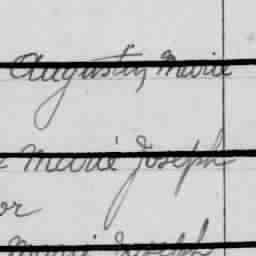 Augustin Marie
Marie Joseph
or
Marie Joseph